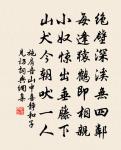 絕壁深溪無四鄰
每逢猿鶴即相親
小奴惊出垂藤下
山犬今朝吠一人
施肩吾山中喜靜和子
見訪詞典網集